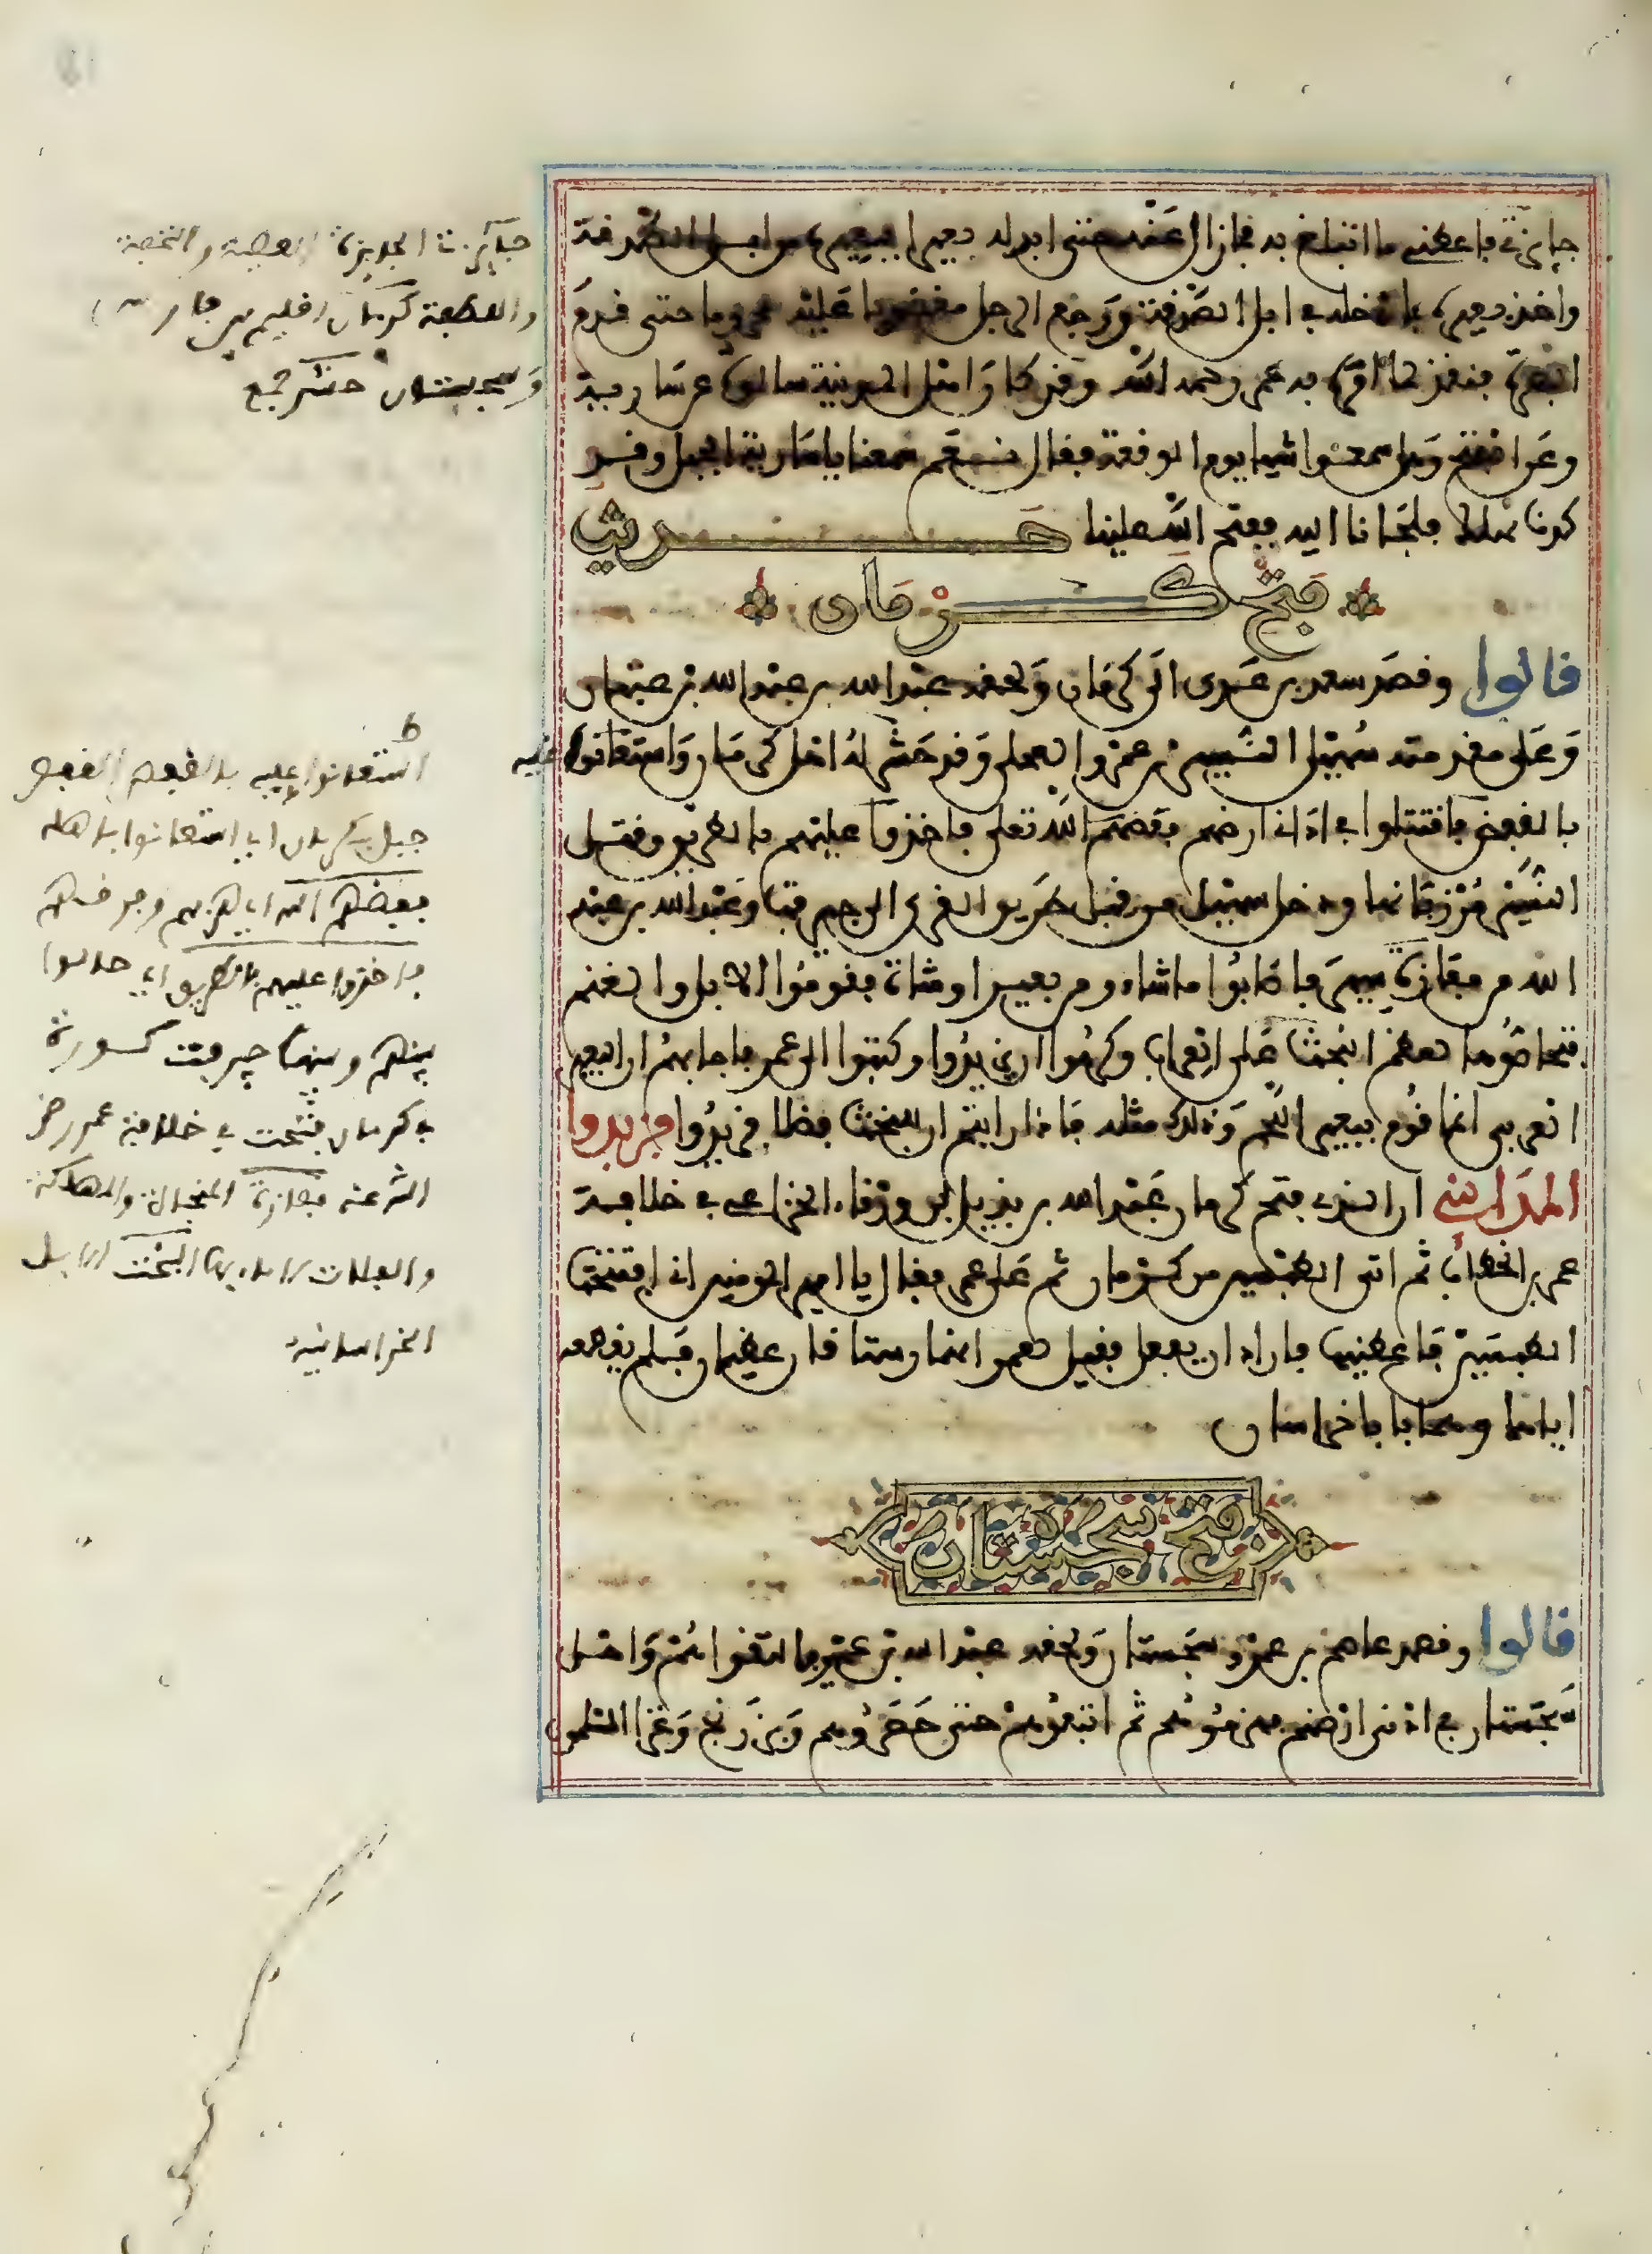 جايزتي فاعطني ما اتبلغ به فما زال عنه حتى ابدله بعيرا ببعيره من ابل الصدقة
واخذ بعيره فادخله في ابل الصدقة ورجع الرجل مغضوبا عليه محروما حتى قدم
البصرة فنفذ لما امره به عمر رحمه الله وقد كان اهل المدينة سالوه عن سارية
وعن الفتح وهل سمعوا شيا يوم الوقعة فقال نعم سمعنا يا سارية الجبل وقد
كدنا نهلك فلجانا اليه ففتح الله علينا حديث
فتح كرمان
قالوا وقصد سهيل بن عدي الى كرمان ولحقه عبد الله بن عبد الله بن عتبان
وعلى مقدمته سهيل النسير بن عمرو العجلي وقد حشد له اهل كرمان واستعانوا عليه
بالقفص فاقتتلوا في اداني ارضهم ففضهم الله تعلى فاخذوا عليهم بالطريق وقتل
النسير مرزبانها ودخل سهيل من قبل طريق القرى الى جيرفت وعبد الله بن عبد
الله من مفازة سير فاصابوا ما شاءو من بعير او شاة فقوموا الابل والغنم
فتحاصوها لعظم البخت على العراب وكرهوا ان يزيدوا وكتبوا الى عمر فاجابهم ان البعير
العربي انما قوم ببعير اللحم وذلك مثله فاذا رايتم ان البخت فضلا فزيدوا فزيدوا
المدايني ان الذي فتح كرمان عبد الله بن بديل بن ورقاء الخزاعي في خلافة
عمر بن الخطاب ثم اتى الطبسين من كرمان ثم على عمر فقال يا امير المومنين اني افتتحت
الطبسين فاعطنيها فاراد ان يفعل فقيل لعمر انها رستاقان عظيمان فلم يقطعه
اياهما وهما بابا خراسان
فتح سجستان
قالوا وقصد عاصم بن عمرو سجستان ولحقه عبد الله بن عمير فالتقوا هم واهل
سجستان في ادنى ارضهم فهزموهم ثم اتبعوهم حتى حصروهم وبزرنج وغزا المسلمون
جايزتي الجايزة العطية والتحفة
والقطعة كرمان اقليم بين فارس
وسجستان حشد جمع
ط
استعانوا عليه بالقفص القفص
جبل بكرمان اي استعانوا باهله
ففضهم الله اي هزمهم وفرقهم
فاخذوا عليهم بالطريق اي حالوا
بينهم وبينها جيرفت كورة
بكرمان فتحت في خلافة عمر رضي
الله عنه مفازة المنجاة والمهلكة
والفلاة لا ماء بها البخت الابل
الخراسانية